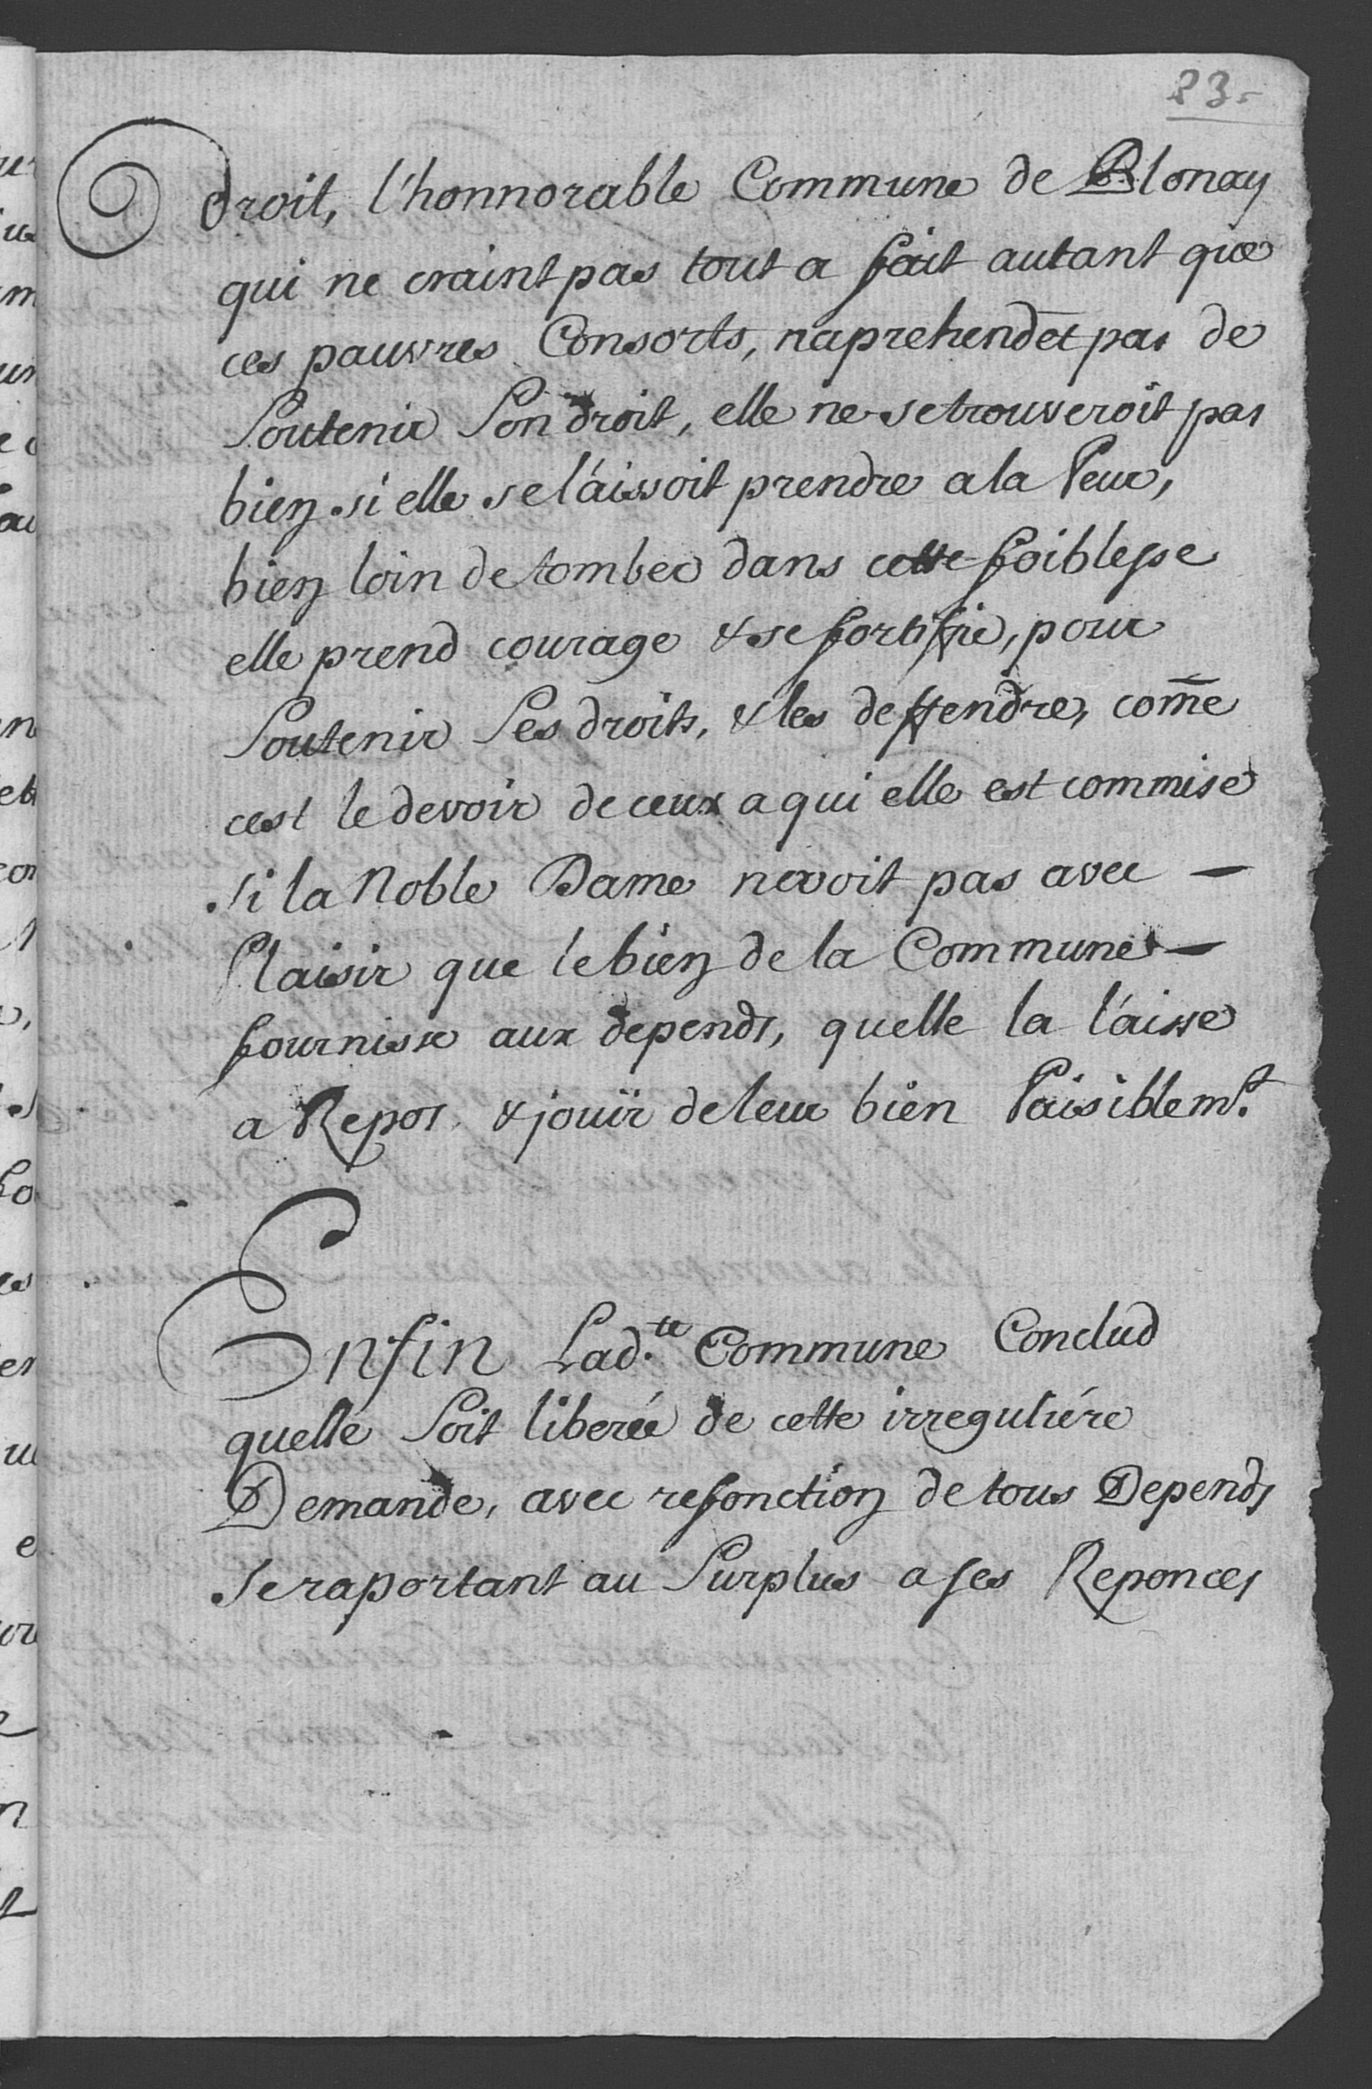 83.
droit, l'honnorable Commune de Blonay
qui ne craint pas tout a fait autant que
ces pauvres Consorts, naprehendet pas de
Soutenir Son droit, elle ne se trouveroit pas
bien si elle se láissoit prendre a la Peur,
bien loin de tomber dans cette foiblesse
elle prend courage & se fortiffie, pour
Soutenir Ses droits, & les deffendre, com̄e
cest le devoir de ceux a qui elle est commise
si la Noble Dame navoit pas avec —
Plaisir que le bien de la Commune —
fournisse aux depends, quelle la láisse
a Repos & jouïr de leur bien Paisiblemt.
Enfin Lad.te Commune Conclud
quelle Soit liberée de cette irreguliére
Demande, avec refonction de tous Depends
Se raportant au Surplus a ses Reponces